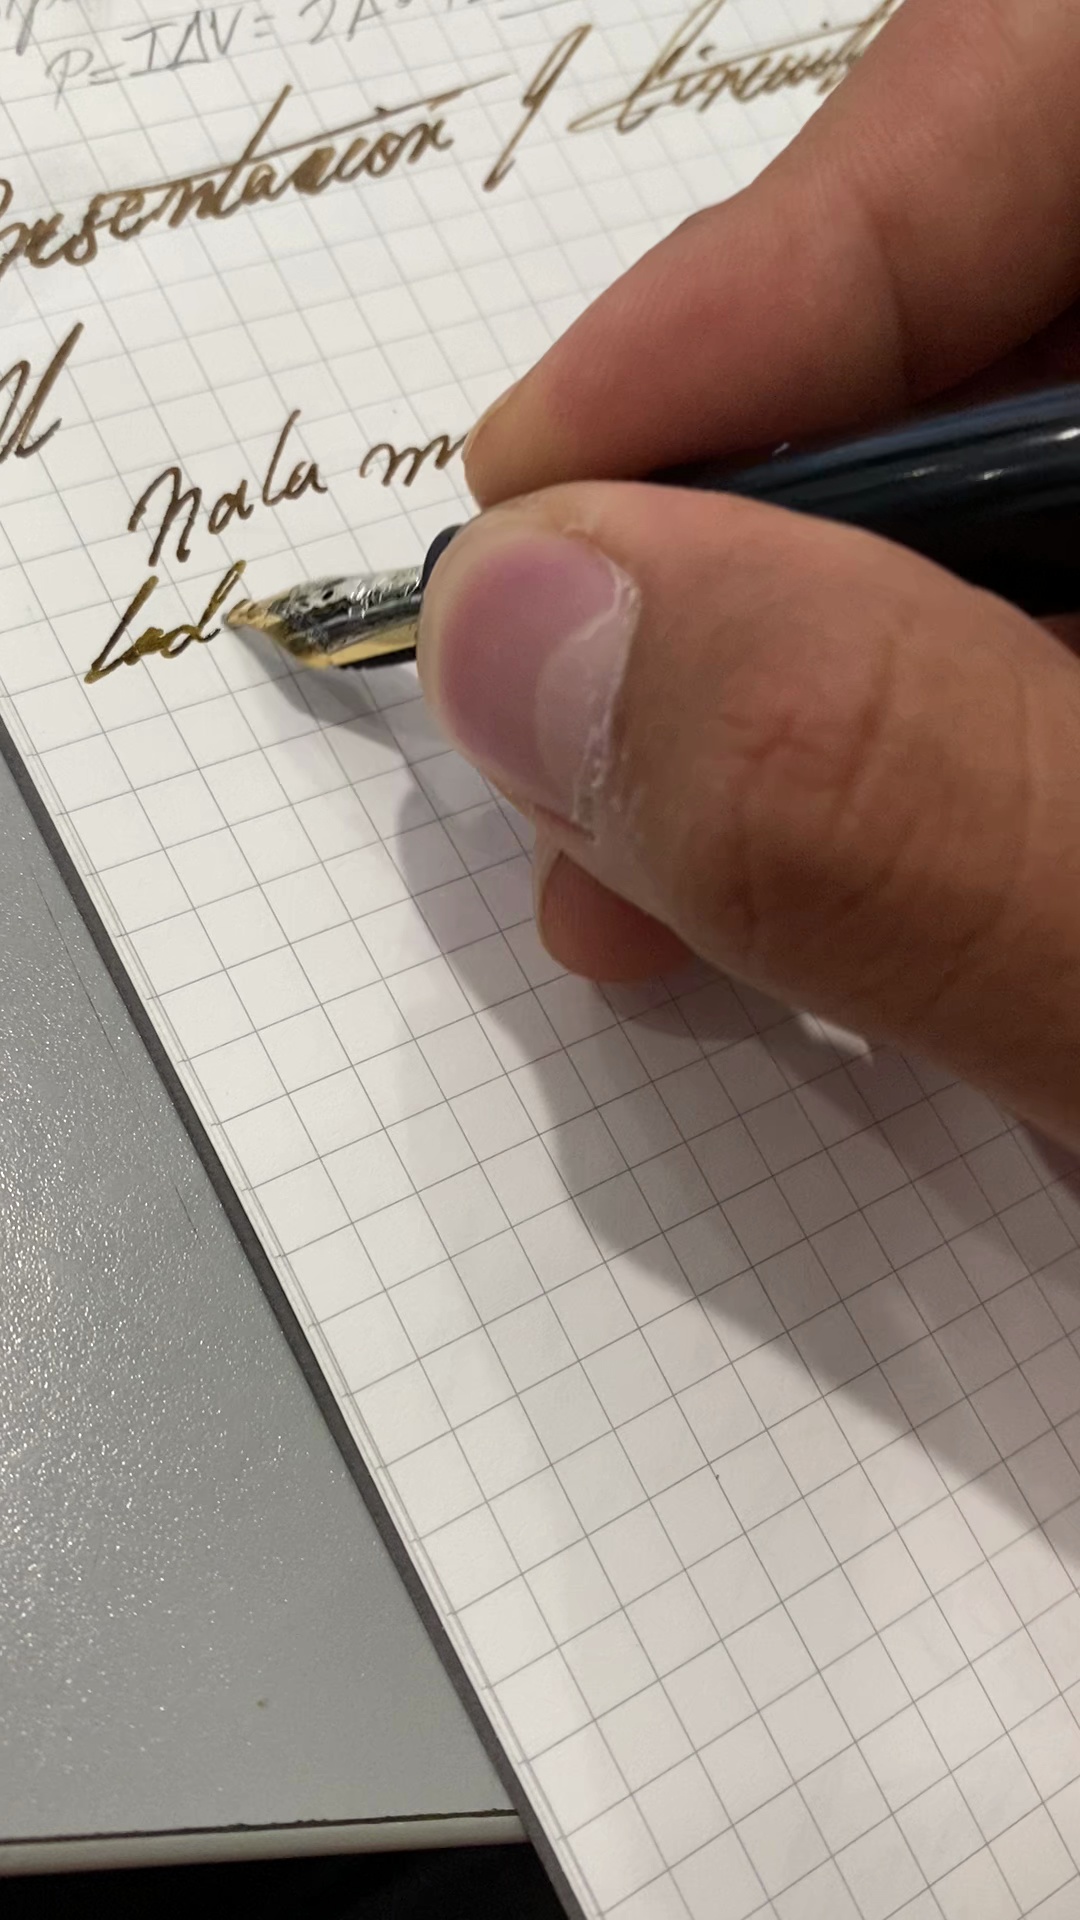 P=IΔV= 2A
Presentación y Circuit
Nala m
Lad